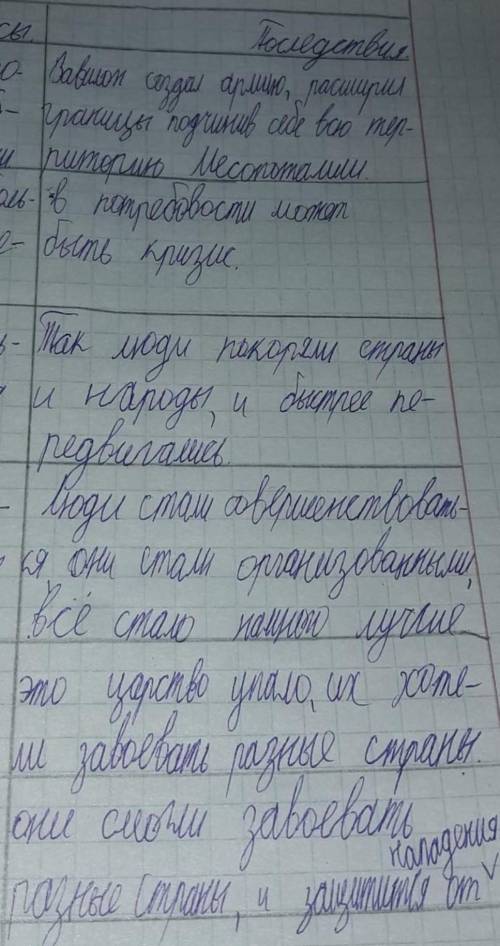 сы. Последствия.
о- Вавилон создал армию, расширил
границы подчинив себе всю тер-
и риторию Месопотамии.
оль- в потребовости может
е- быть кризис.
ь- Так люди покоряли страны
и народы, и быстрее пе-
редвигались.
- Люди стали совершенствовать-
ся, они стали организованными,
всё стало намного лучше
это царство упало, их хоте-
ли завоевать разные страны.
они смогли завоевать
разные страны, и защитится от нападения